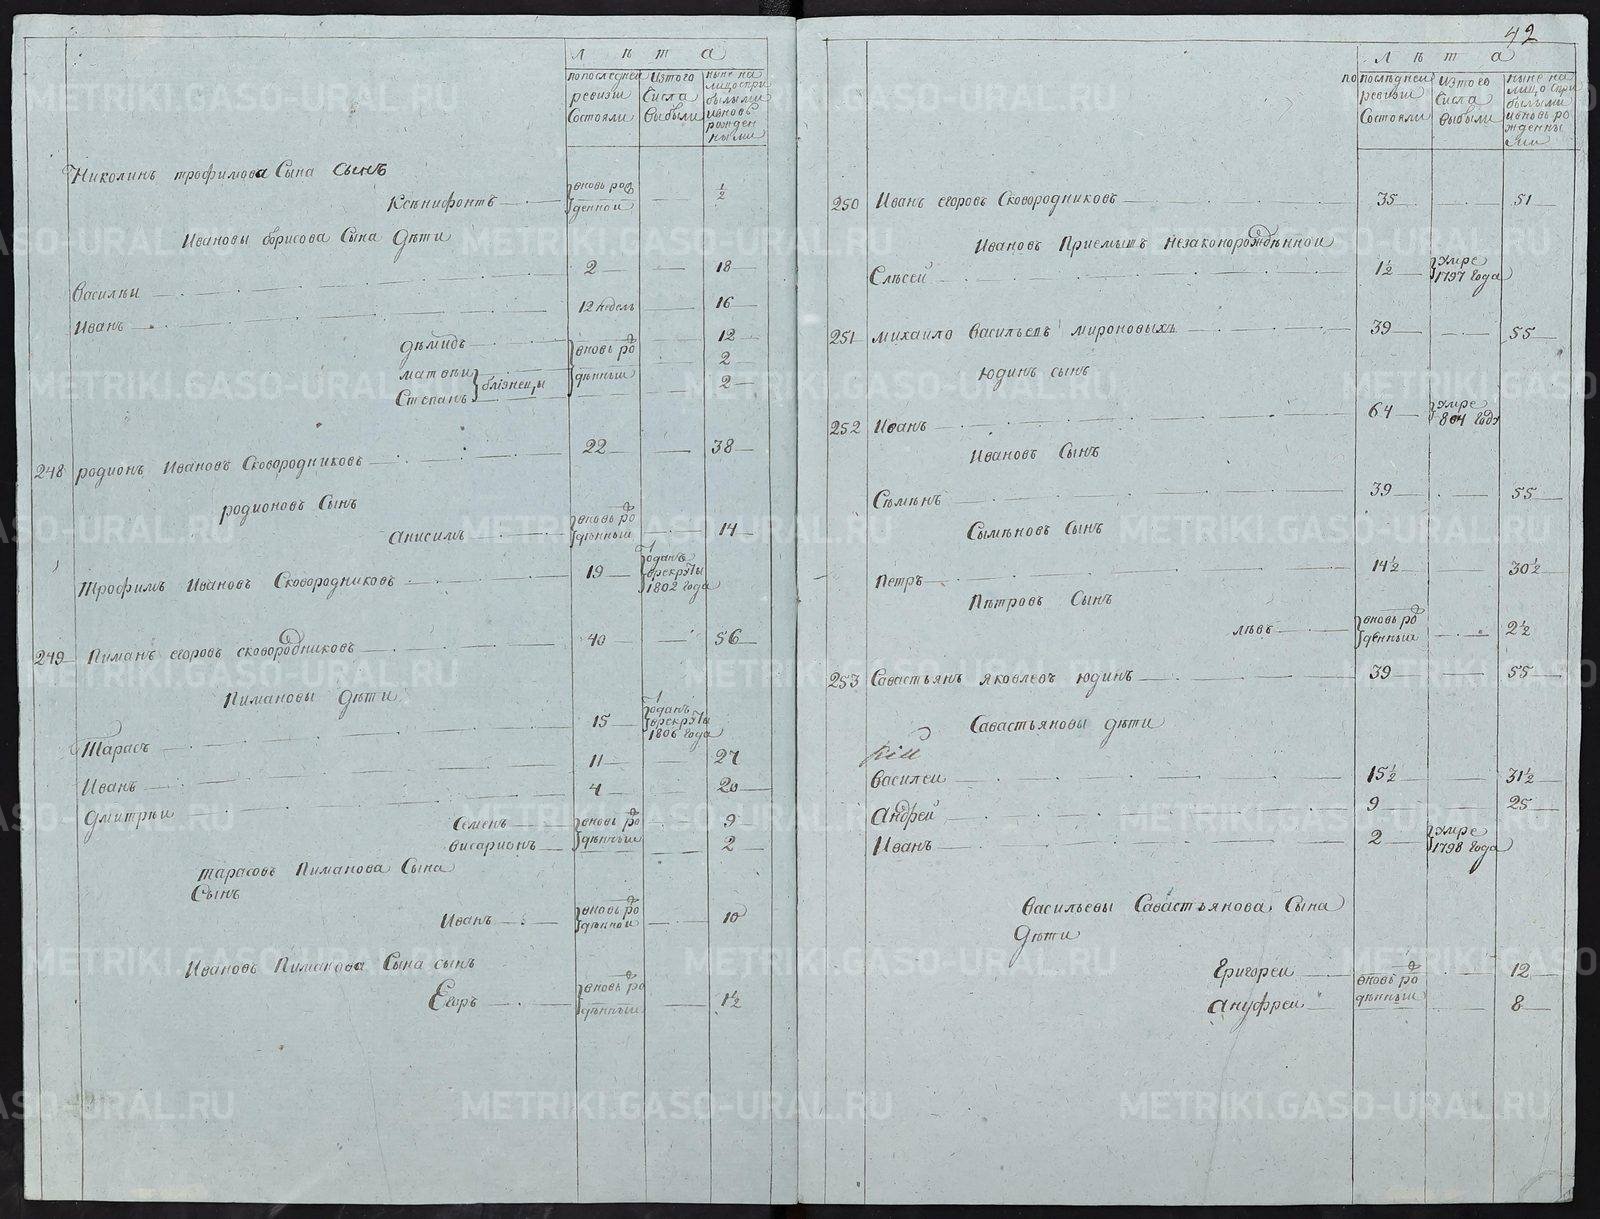 лѣта
по последней ревизии состояли
изтого числа выбыли
ныне на лицо спри былыми ивновь рожден ными
Николинъ трофимова Сына сынъ
Ксѣнифонтъ вновь рож денной ½
Ивановы борисова Сына дѣти
Василѣи 2 18
Иванъ 12 недель 16
дѣмидъ вновь ро 12
матвѣи близнецы дѣнныи 2
Степанъ 2
248 родионъ Ивановъ Сковородниковъ 22 38
родионовъ Сынъ
анисимъ вновь ро дѣнныи 14
Трофимъ Ивановъ Сковородниковъ 19 одань врекруты 1802 года
249 Пиманъ егоровъ сковородниковъ 40 56
Пимановы дѣти
Тарасъ 15 одань врекруты 1806 года
Иванъ 11 27
дмитрѣи 4 20
Семенъ вновь ро 9
висарионъ дѣнныи 2
тарасовъ Пиманова Сына
Сынъ
Иванъ вновь ро дѣнной 10
Ивановъ Пиманова Сына сынъ
Егоръ вновь ро дѣнныи 1½
42
лѣта
по последней ревизии состояли
изтого числа выбыли
ныне на лицо спри былыми ивновь ро жденны ми
250 Иванъ егоровъ Сковородниковъ 35 51
Ивановъ Приемышъ незаконорожденной
Елѣсей 1½ умре 1797 года
251 михайло васильевъ мироновыхъ 39 55
юдинъ сынъ
252 Иванъ 64 умре 804 году
Ивановъ Сынъ
Сѣмѣнъ 39 55
Сымѣновъ Сынъ
Пѣтръ 14½ 30½
Пѣтровъ Сынъ
лѣвъ вновь ро денныи 2½
253 Савастьянъ яковлевъ юдинъ 39 55
Савастьяновы дѣти
василеи 15½ 31½
андрей 9 25
Иванъ 2 умре 1798 года
васильевы Савастьянова Сына
дѣти
Григореи вновь ро 12
ануфреи дѣнныи 8
METRIKI.GASO-URAL.RU